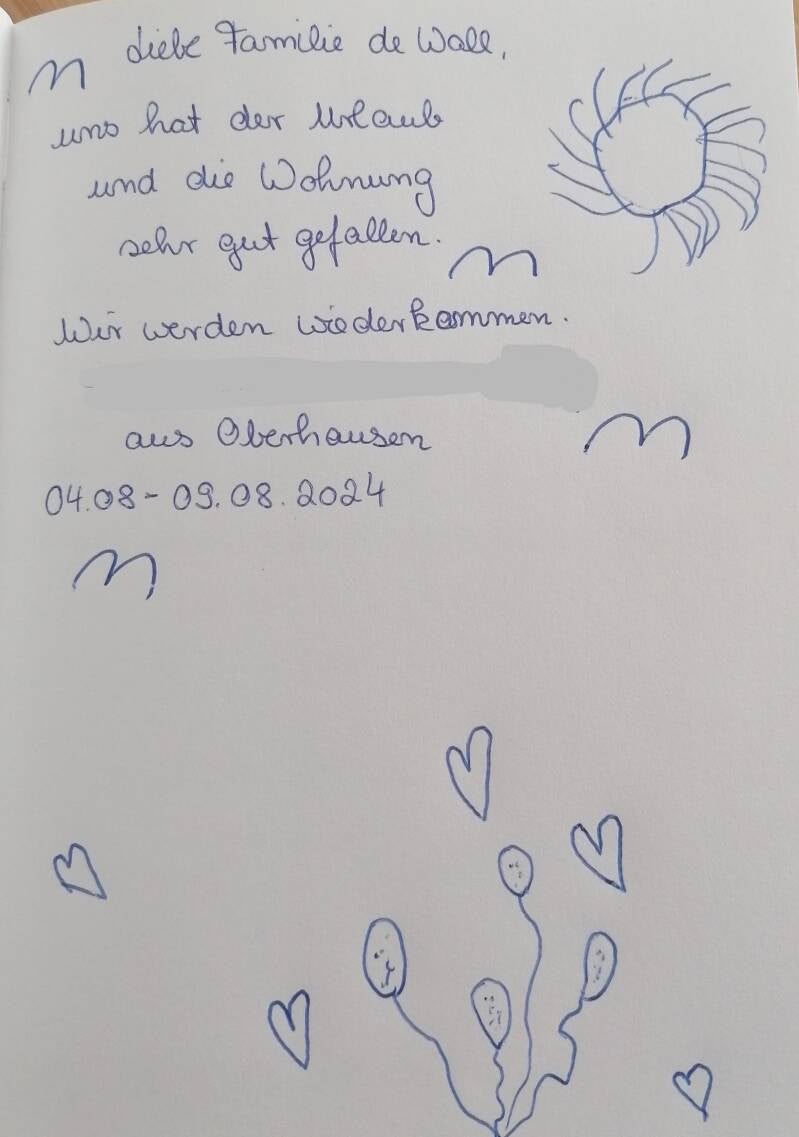 Liebe Familie de Wall,
uns hat der Urlaub
und die Wohnung
sehr gut gefallen.
Wir werden wiederkommen.
aus Oberhausen
04.08 - 09.08.2024